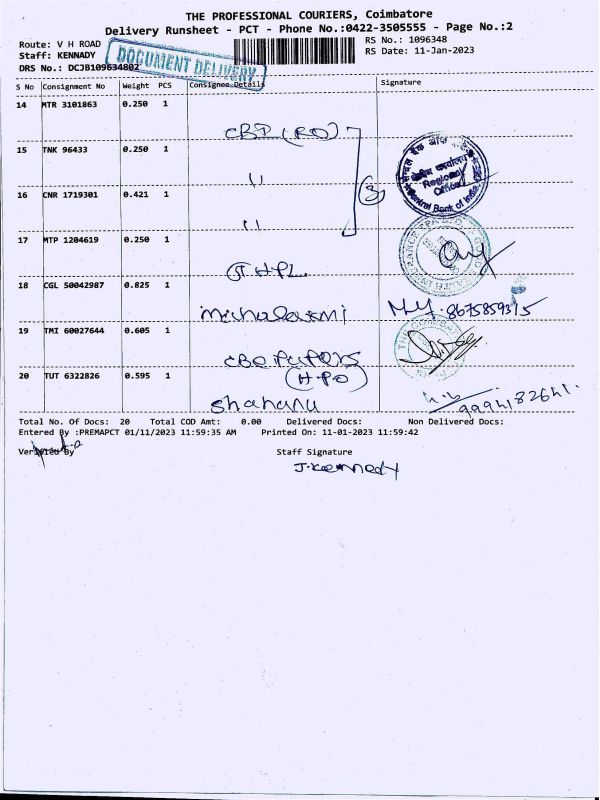 THE PROFESSIONAL COURIERS, Coimbatore
Delivery Runsheet - PCT - Phone No.:0422-3505555 - Page No.:2
Route: V H ROAD RS No.: 1096348
Staff: KENNADY RS Date: 11-Jan-2023
DRS No.: DCJB109634802
DOCUMENT DELIVERY
S No Consignment No Weight PCS Consignee Details Signature
14 MTR 3101863 0.250 1
CBI (RO)
15 TNK 96433 0.250 1
"
16 CNR 1719301 0.421 1
"
3
Regional Office
Central Bank of India
17 MTP 1204619 0.250 1
18 CGL 50042987 0.825 1
8675859315
19 TMI 60027644 0.605 1
(HPO)
20 TUT 6322826 0.595 1
9994182641
Total No. Of Docs: 20 Total COD Amt: 0.00 Delivered Docs: Non Delivered Docs:
Entered By :PREMAPCT 01/11/2023 11:59:35 AM Printed On: 11-01-2023 11:59:42
Verified By Staff Signature
J.Kennedy